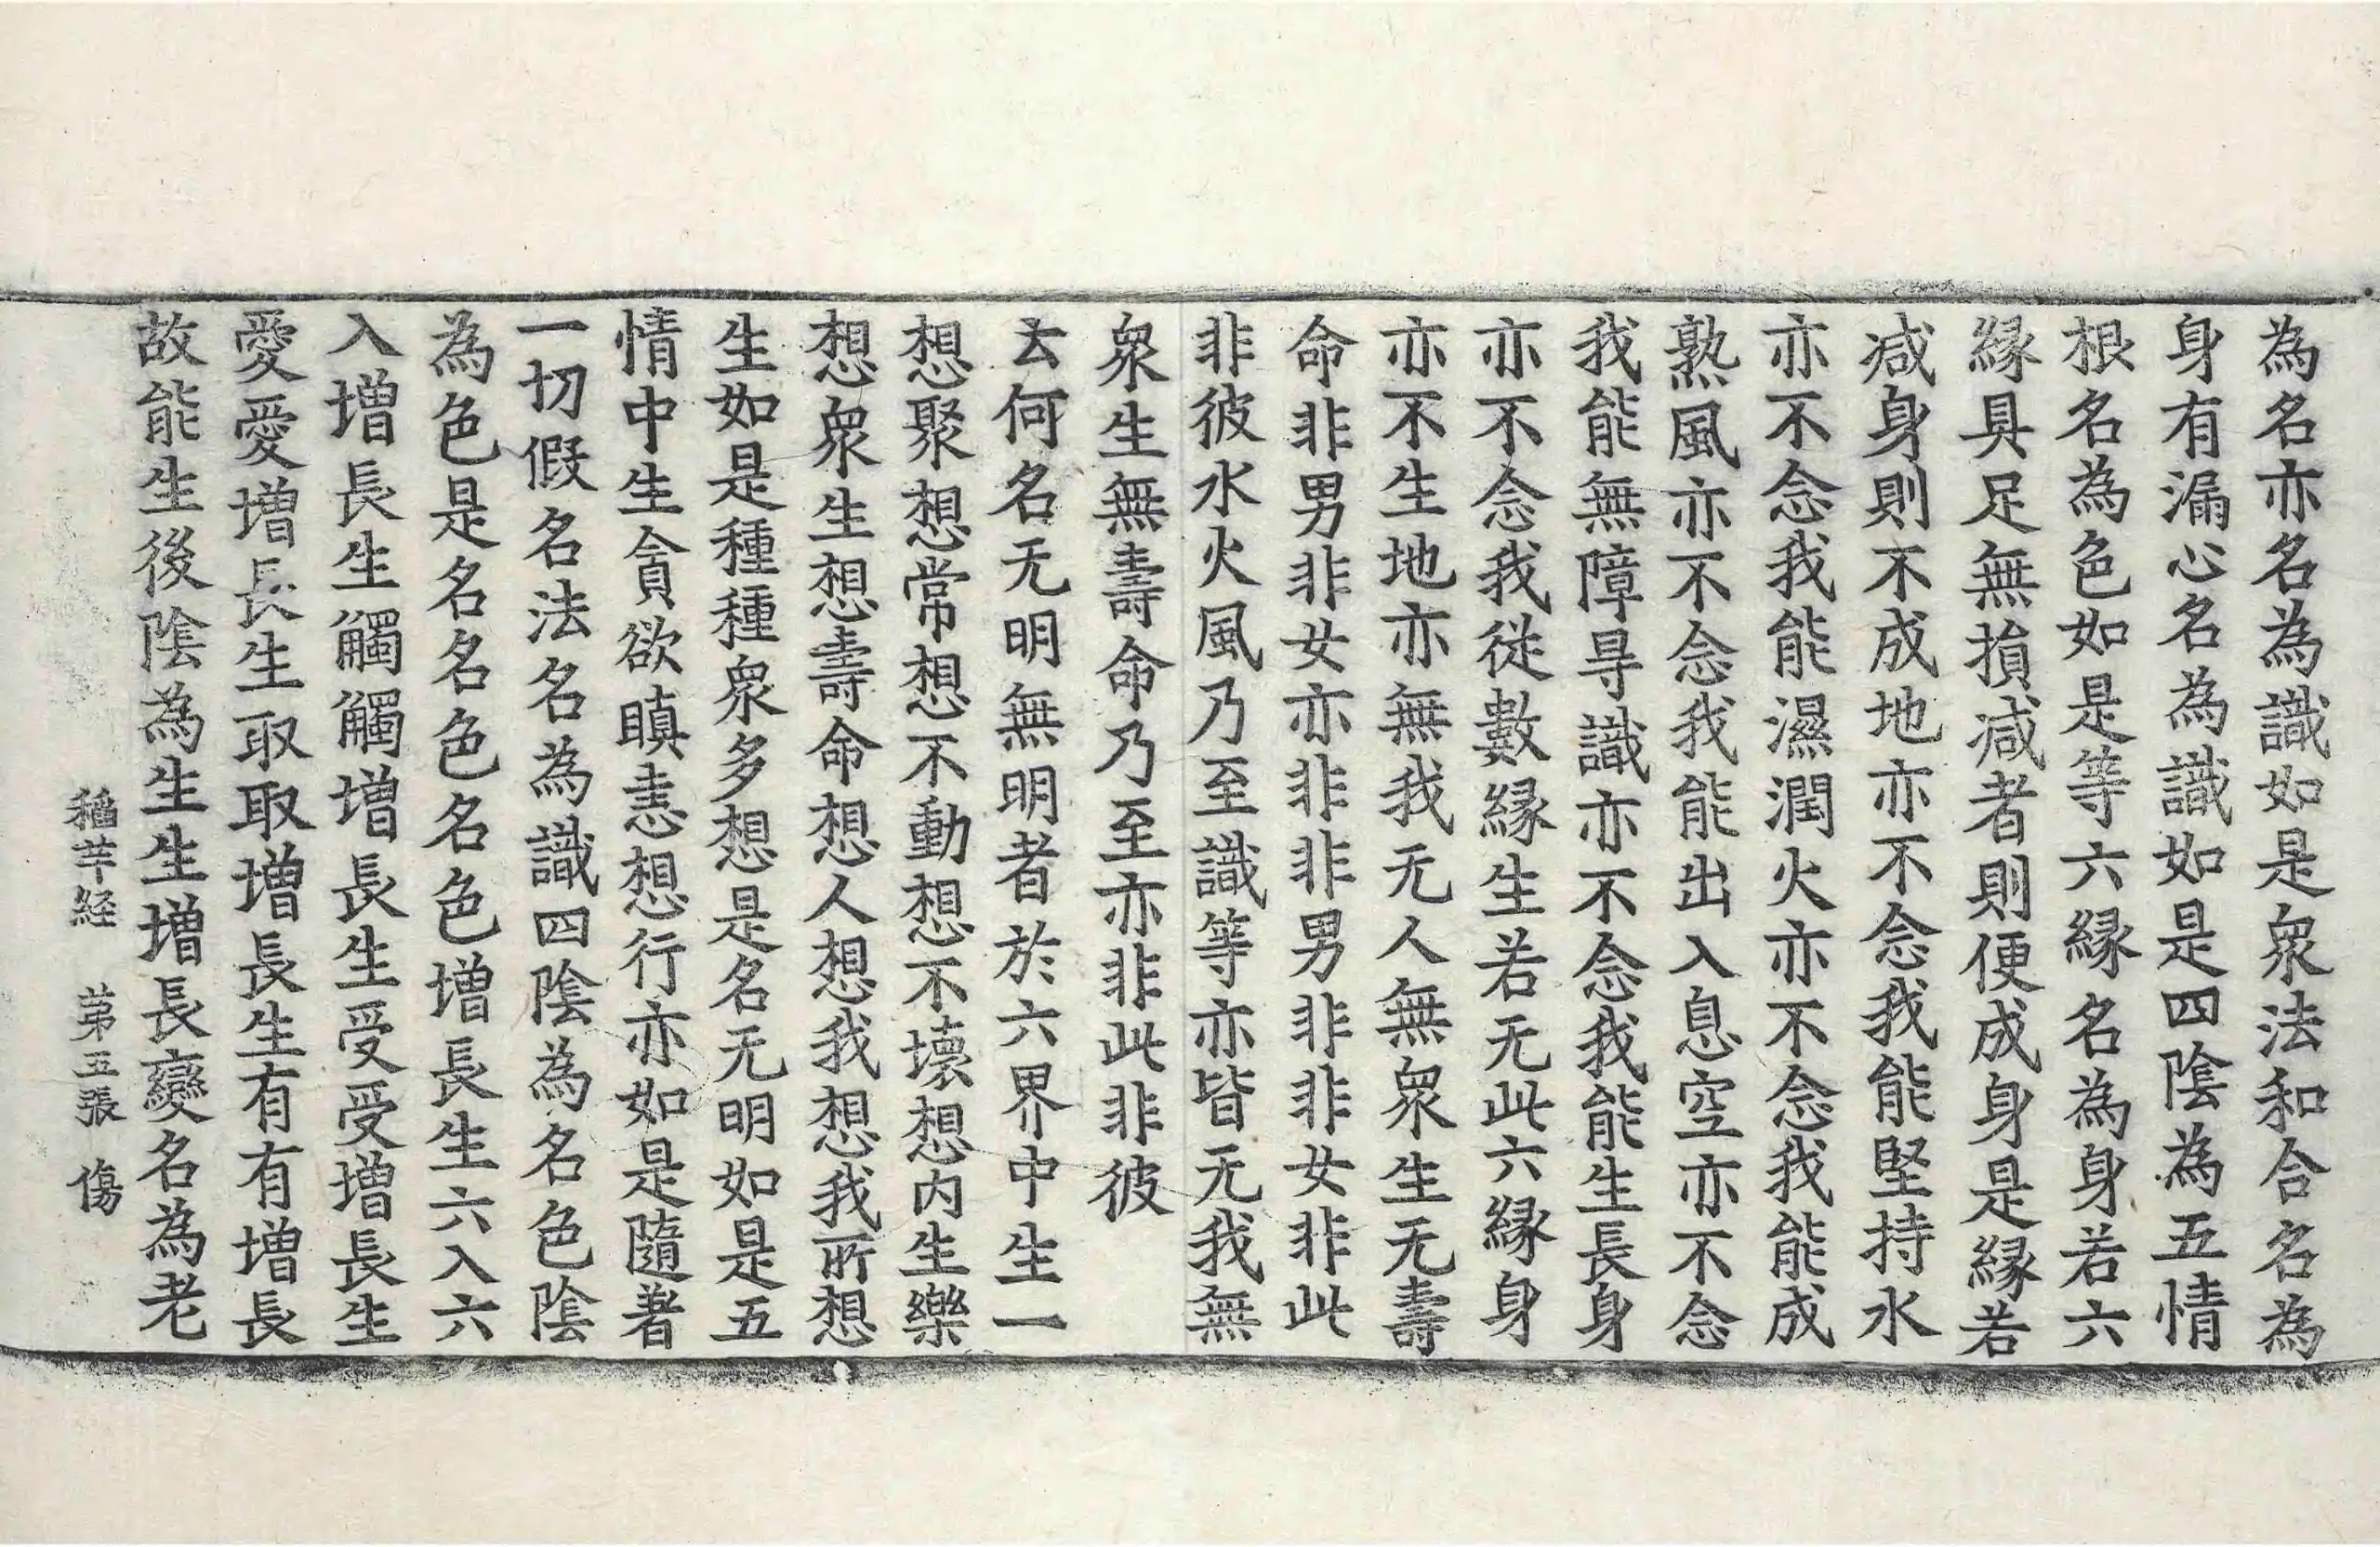 為名亦名為識如是眾法和合名為
身有漏心名為識如是四陰為五情
根名為色如是等六緣名為身若六
緣具足無損减者則便成身是緣若
减身則不成地亦不念我能堅持水
亦不念我能濕潤火亦不念我能成
熟風亦不念我能出入息空亦不念
我能無障㝵識亦不念我能生長身
亦不念我從數緣生若无此六緣身
亦不生地亦無我无人無眾生无壽
命非男非女亦非非男非非女非此
非彼水火風乃至識等亦皆无我無
眾生無壽命乃至亦非此非彼
云何名无明無明者於六界中生一
想聚想常想不動想不壞想内生樂
想眾生想壽命想人想我想我所想
生如是種種眾多想是名无明如是五
情中生貪欲瞋恚想行亦如是隨著
一切假名法名為識四陰為名色陰
為色是名名色名色增長生六入六
入增長生觸觸增長生受受增長生
愛愛增長生取取增長生有有增長
故能生後陰為生生增長變名為老
稻芉経 苐五張 傷